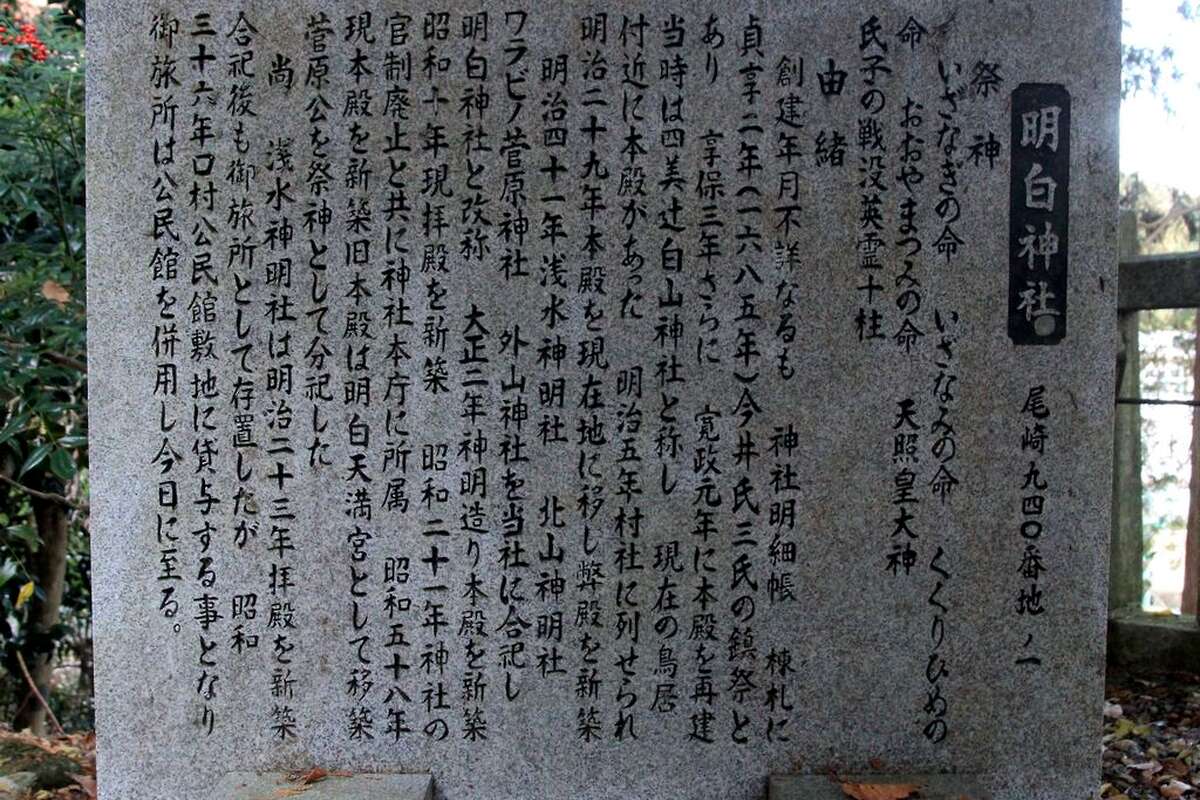 明白神社 尾崎九四〇番地ノ一
祭神
いざなぎの命 いざなみの命 くくりひめの
命 おおやまつみの命 天照皇大神
氏子の戦没英霊十柱
由緒
創建年月不詳なるも 神社明細帳 棟札に
貞享二年(一六八五年)今井氏三氏の鎮祭と
あり 享保三年さらに 寛政元年に本殿を再建
当時は四美辻白山神社と称し 現在の鳥居
付近に本殿があった 明治五年村社に列せられ
明治二十九年本殿を現在地に移し弊殿を新築
明治四十一年浅水神明社 北山神明社
ワラビノ菅原神社 外山神社を当社に合祀し
明白神社と改称 大正二年神明造り本殿を新築
昭和十年現拝殿を新築 昭和二十一年神社の
官制廃止と共に神社本庁に所属 昭和五十八年
現本殿を新築旧本殿は明白天満宮として移築
菅原公を祭神として分祀した
尚 浅水神明社は明治二十三年拝殿を新築
合祀後も御旅所として存置したが 昭和
三十六年口村公民館敷地に貸与する事となり
御旅所は公民館を併用し今日に至る。